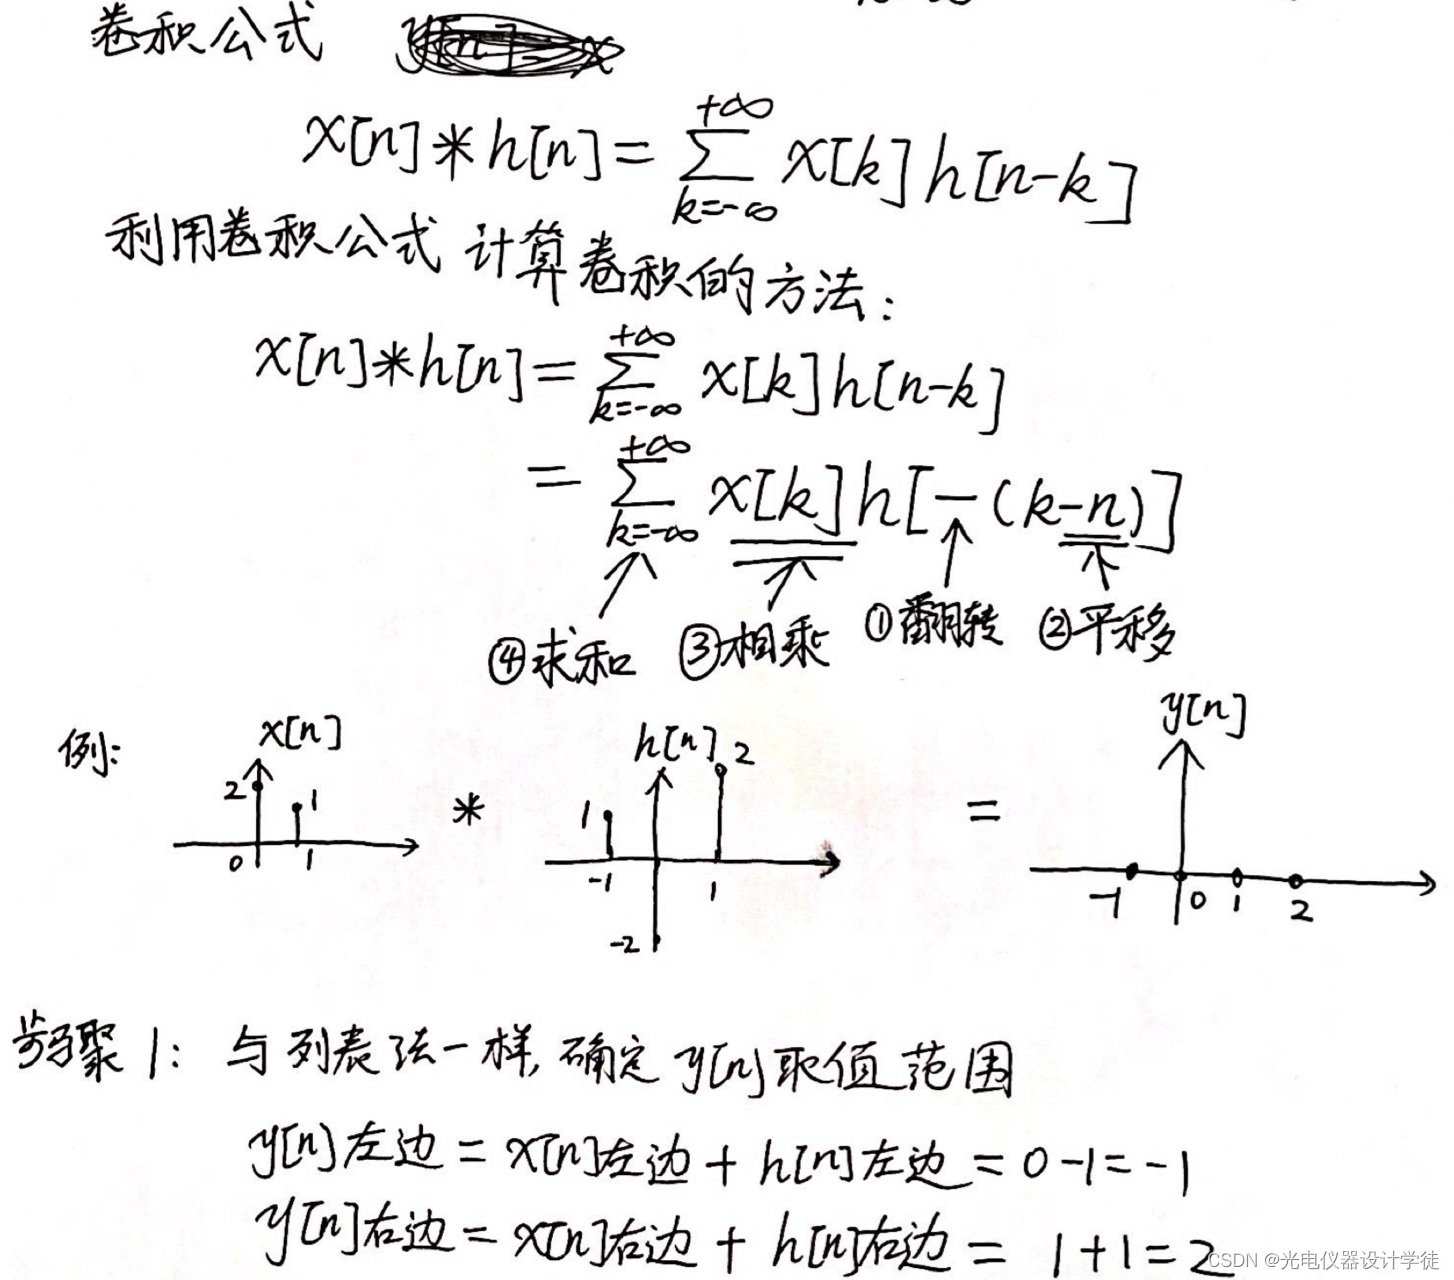 卷积公式
x[n]*h[n]=∑_{k=-∞}^{+∞} x[k]h[n-k]
利用卷积公式 计算卷积的方法：
x[n]*h[n]=∑_{k=-∞}^{+∞} x[k]h[n-k]
=∑_{k=-∞}^{+∞} x[k]h[-(k-n)]
④求和 ③相乘 ①翻转 ②平移
例: x[n] h[n] y[n]
2 1 * 1 2 =
0 1 -1 1 -2 -1 0 1 2
步骤1: 与列表法一样, 确定y[n]取值范围
y[n]左边=x[n]左边+h[n]左边=0-1=-1
y[n]右边=x[n]右边+h[n]右边=1+1=2
CSDN @光电仪器设计学徒